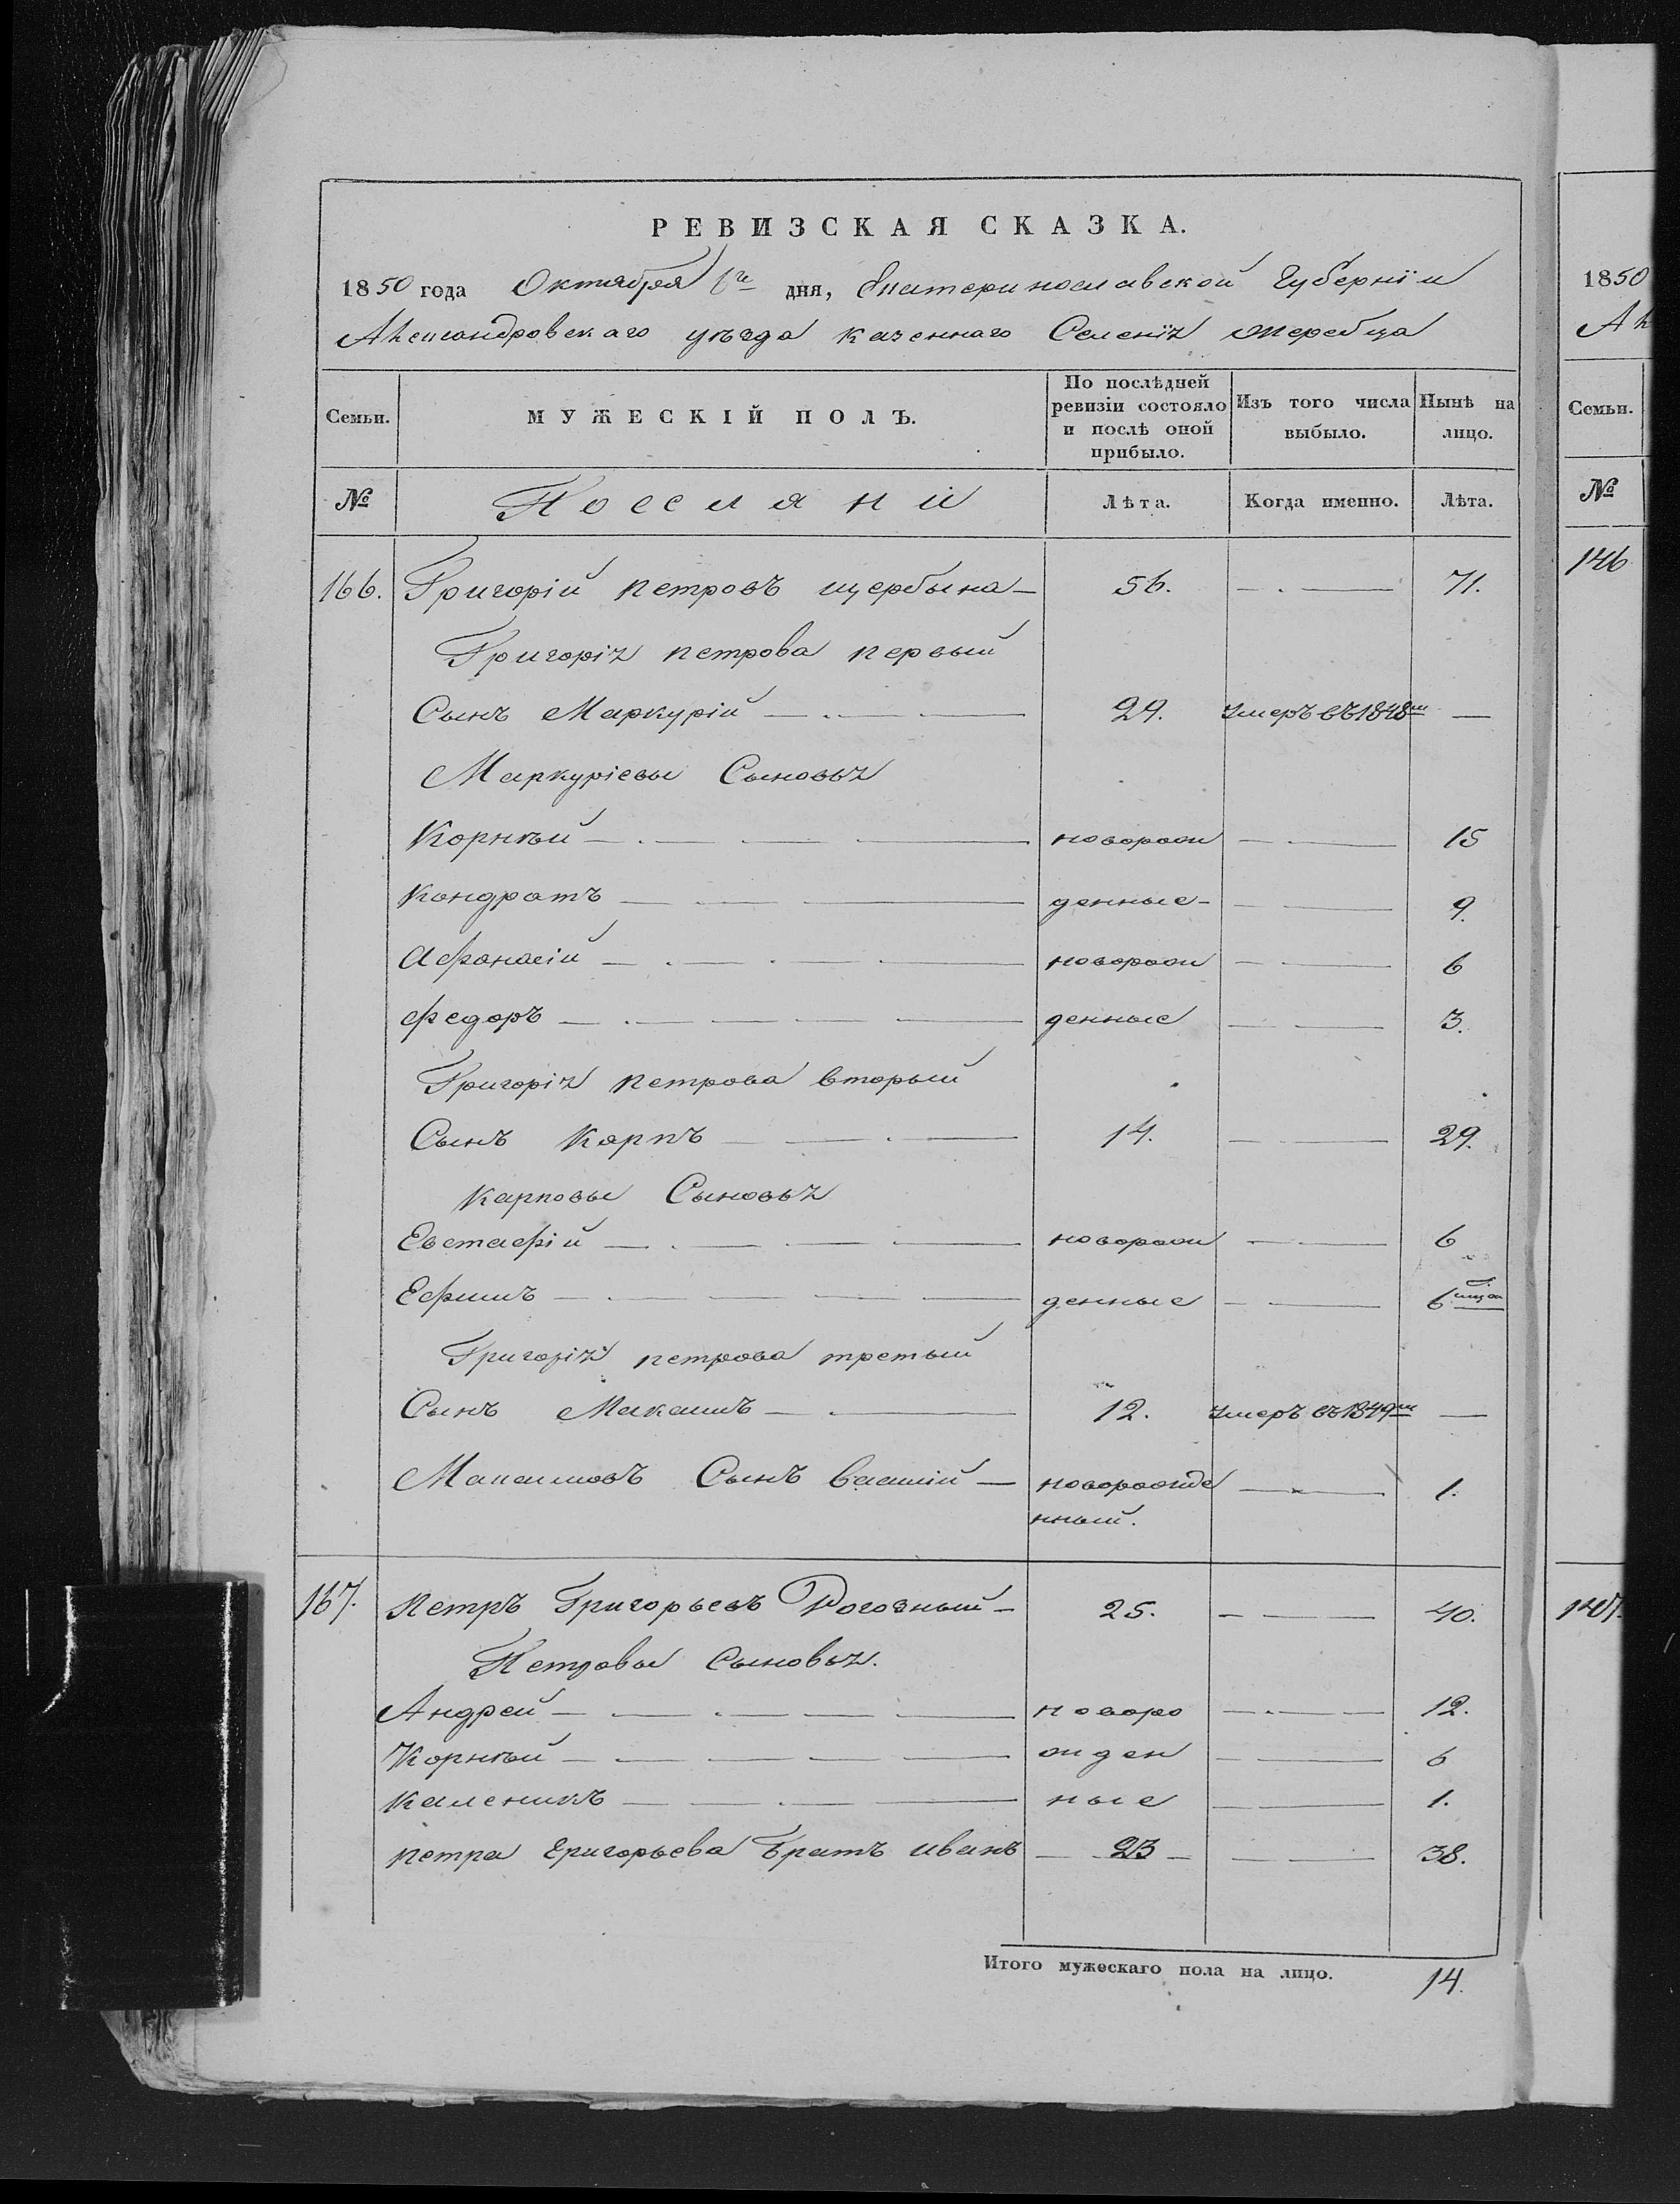 РЕВИЗСКАЯ СКАЗКА.
1850 года Октября 6го дня, Екатеринославской Губерніи
Александровскаго уѣзда казеннаго Селенія Жеребца
Семьи. МУЖЕСКІЙ ПОЛЪ. По послѣдней ревизіи состояло и послѣ оной прибыло. Изъ того числа выбыло. Нынѣ на лицо.
№ Поселяни Лѣта. Когда именно. Лѣта.
166. Григорій петровъ щербына — 56. — 71.
Григорія петрова первый
Сынъ Маркурій — 29. умеръ въ 1848м —
Маркуріевы Сыновья
Корнѣй — новорож — 15
Кондратъ — денные — 9.
Афонасій — новорож — 6
федоръ — денные — 3.
Григорія петрова вторый
Сынъ Карпъ — 14. — 29.
Карповы Сыновья
Евстафій — новорож — 6
Ефимъ — денные — 6
Григорія петрова третый
Сынъ Макаимъ — 12. умеръ въ 1849м —
Макаимовъ Сынъ василій — новорожде — 1.
нный.
167. Петръ Григорьевъ Рогозный — 25. — 40.
Петровы Сыновья.
Андрей — новоро — 12.
Корнѣй — жден — 6
Каленикъ — ные — 1.
петра Григорьева Братъ иванъ — 23 — 38.
Итого мужескаго пола на лицо. 14.
1850
Ал
Семьи.
№
146
147.